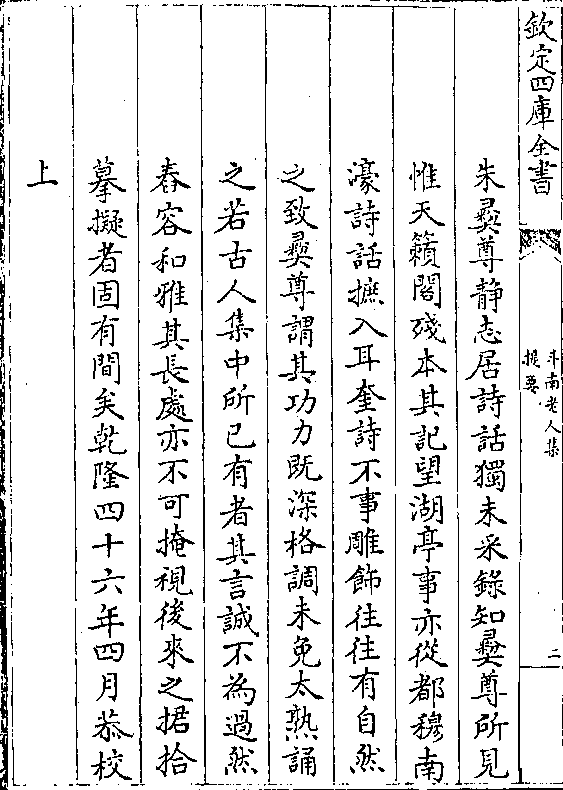 欽定四庫全書
斗南老人集
提要
二
朱彝尊静志居詩話獨未采錄知彝尊所見
惟天籟閣殘本其記望湖亭事亦從都穆南
濠詩話摭入耳奎詩不事雕飾往往有自然
之致彝尊謂其功力既深格調未免太熟誦
之若古人集中所已有者其言誠不為過然
舂容和雅其長處亦不可掩視後來之捃拾
摹擬者固有間矣乾隆四十六年四月恭校
上